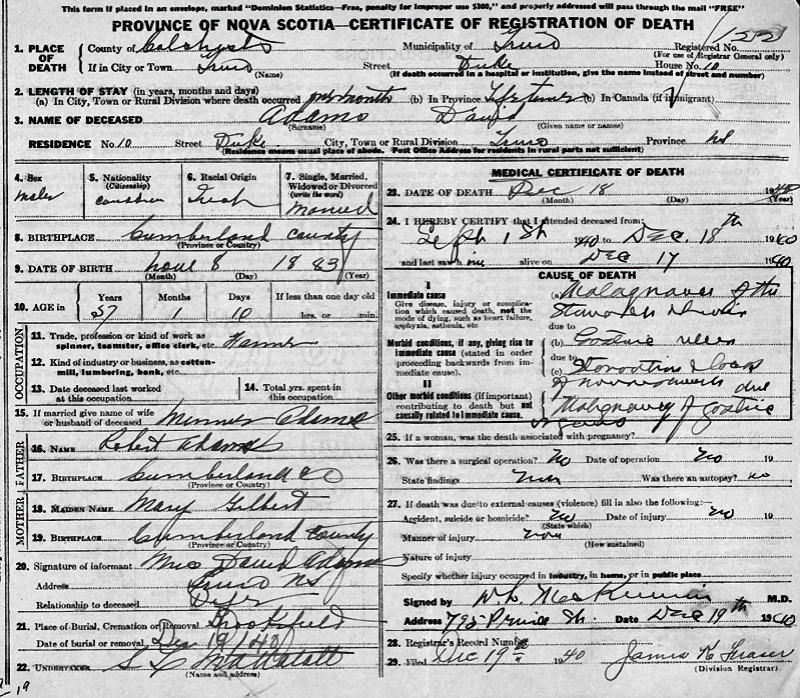 This form if placed in an envelope, marked "Dominion Statistics—Free, penalty for improper use $300," and properly addressed will pass through the mail "FREE"
PROVINCE OF NOVA SCOTIA—CERTIFICATE OF REGISTRATION OF DEATH
1. PLACE OF DEATH
County of Colchester Municipality of Truro Registered No.
(For use of Registrar General only)
If in City or Town Truro Street Duke House No. 10
(Name) (If death occurred in a hospital or institution, give the name instead of street and number)
2. LENGTH OF STAY (in years, months and days)
(a) In City, Town or Rural Division where death occurred (b) In Province Lifetime (c) In Canada (if immigrant)
3. NAME OF DECEASED Adams David
(Surname) (Given name or names)
RESIDENCE No. 10 Street Duke City, Town or Rural Division Truro Province NS
(Residence means usual place of abode. Post Office Address for residents in rural parts not sufficient)
4. Sex
male
5. Nationality
(Citizenship)
Canadian
6. Racial Origin
Irish
7. Single, Married, Widowed or Divorced
(write the word)
Married
8. BIRTHPLACE Cumberland County
(Province or Country)
9. DATE OF BIRTH Nove 8 1883
(Month) (Day) (Year)
10. AGE in
Years Months Days If less than one day old
57 1 10 hrs. or min.
OCCUPATION
11. Trade, profession or kind of work as spinner, teamster, office clerk, etc. Farmer
12. Kind of industry or business, as cotton-mill, lumbering, bank, etc.
13. Date deceased last worked at this occupation
14. Total yrs. spent in this occupation
15. If married give name of wife or husband of deceased Adams
FATHER
16. NAME Robert Adams
17. BIRTHPLACE Cumberland Co
(Province or Country)
MOTHER
18. MAIDEN NAME Mary Gilbert
19. BIRTHPLACE Cumberland County
(Province or Country)
20. Signature of informant Mrs David Adams
Address Truro NS
Relationship to deceased
21. Place of Burial, Cremation or Removal Brookfield
Date of burial or removal Dec 19/40
22. UNDERTAKER
(Name and address)
MEDICAL CERTIFICATE OF DEATH
23. DATE OF DEATH Dec 18 1940
(Month) (Day) (Year)
24. I HEREBY CERTIFY that I attended deceased from:
Sept 1st 1940 to Dec. 18th 1940
and last saw him alive on Dec 17 1940
CAUSE OF DEATH
I
Immediate cause
Give disease, injury or complication which caused death, not the mode of dying, such as heart failure, asphyxia, asthenia, etc
Morbid conditions, if any, giving rise to immediate cause (stated in order proceeding backwards from immediate cause).
II
Other morbid conditions (if important) contributing to death but not causally related to immediate cause.
(a) Malignancy of the
Stomach
due to
(b) Gastric ulcer
due to
(c) Starvation & loss
of due
Malignancy of Gastric
organs
25. If a woman, was the death associated with pregnancy?
26. Was there a surgical operation? No Date of operation No
State findings Was there an autopsy? No
27. If death was due to external causes (violence) fill in also the following:—
Accident, suicide or homicide? No Date of injury No 19
(State which)
Manner of injury
(How sustained)
Nature of injury
Specify whether injury occurred in industry, in home, or in public place
Signed by M.D.
Address Prince St. Date Dec 19th 1940
28. Registrar's Record Number
29. Filed Dec 19th 1940 James K Fraser
(Division Registrar)
19